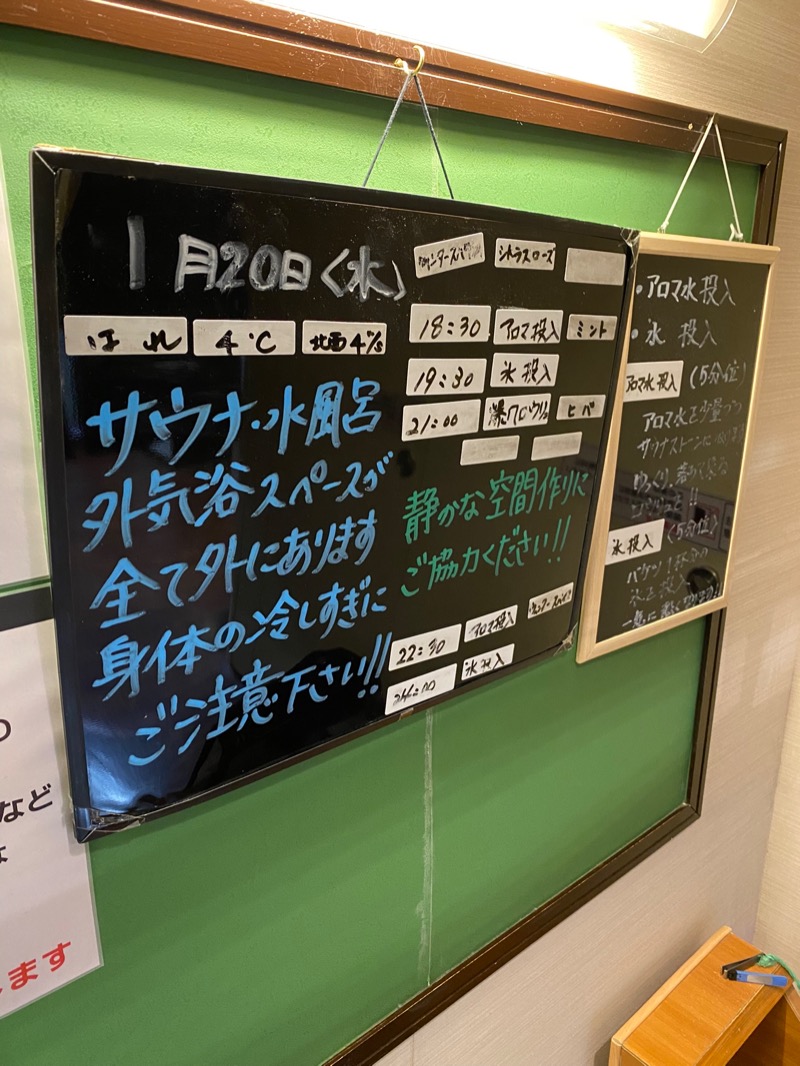 1月20日〈水〉
はれ 4℃ 北西4㎧
サウナ・水風呂
外気浴スペースが
全て外にあります
身体の冷しすぎに
ご注意下さい!!
シトラスローズ
18:30 アロマ投入 ミント
19:30 氷投入
21:00 爆ロウリュ ヒバ
静かな空間作りに
ご協力ください!!
22:30 アロマ投入
氷投入
・アロマ水投入
・氷 投入
アロマ水投入 (5分位)
アロマ水を少量づつ
サウナストーンに
ゆっくり
氷投入 (5分位)
バケツ1杯分の
氷を投入
一気に
など
ます